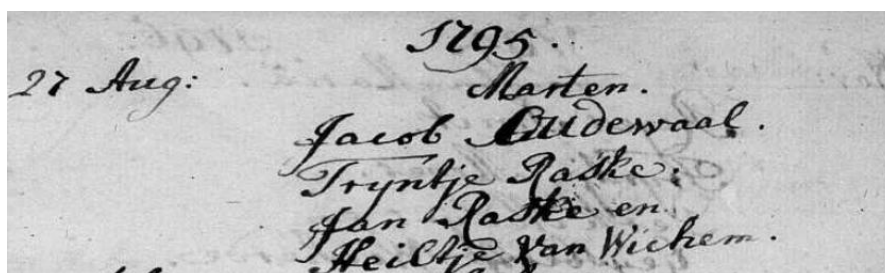 1795.
27 Aug: Marten.
Jacob Oudewaal.
Tryntje Raske;
Jan Raske en
Heiltje Van Wichem.